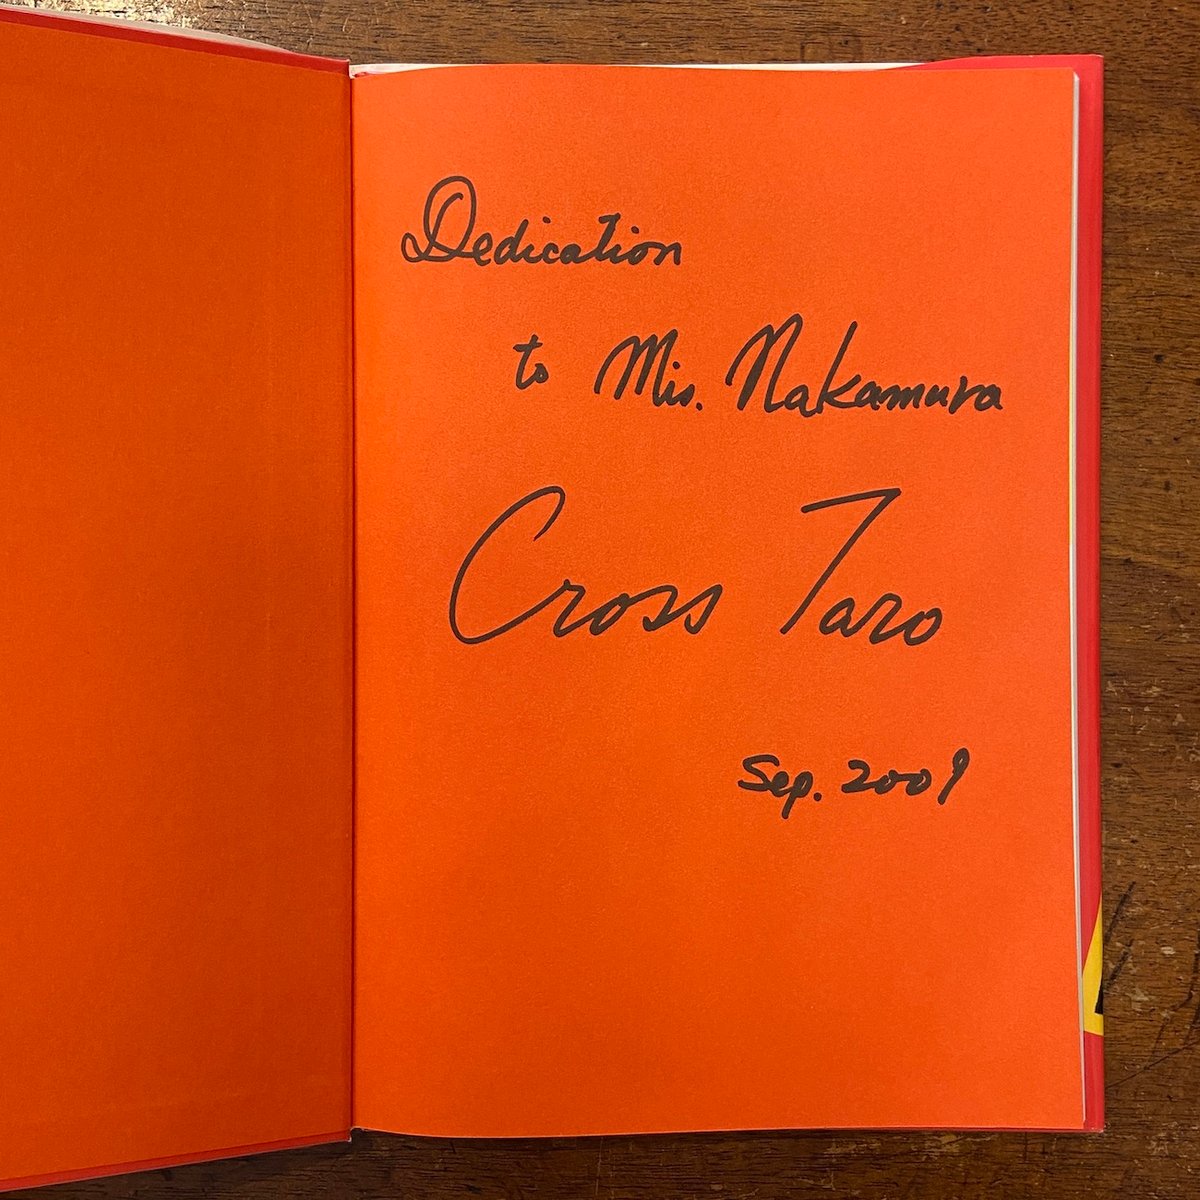 Dedication
to Mis. Nakamura
Cross Taro
Sep. 2009